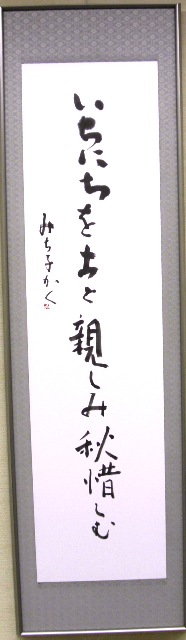 いちにちを土と親しみ秋惜しむ
みち子かく